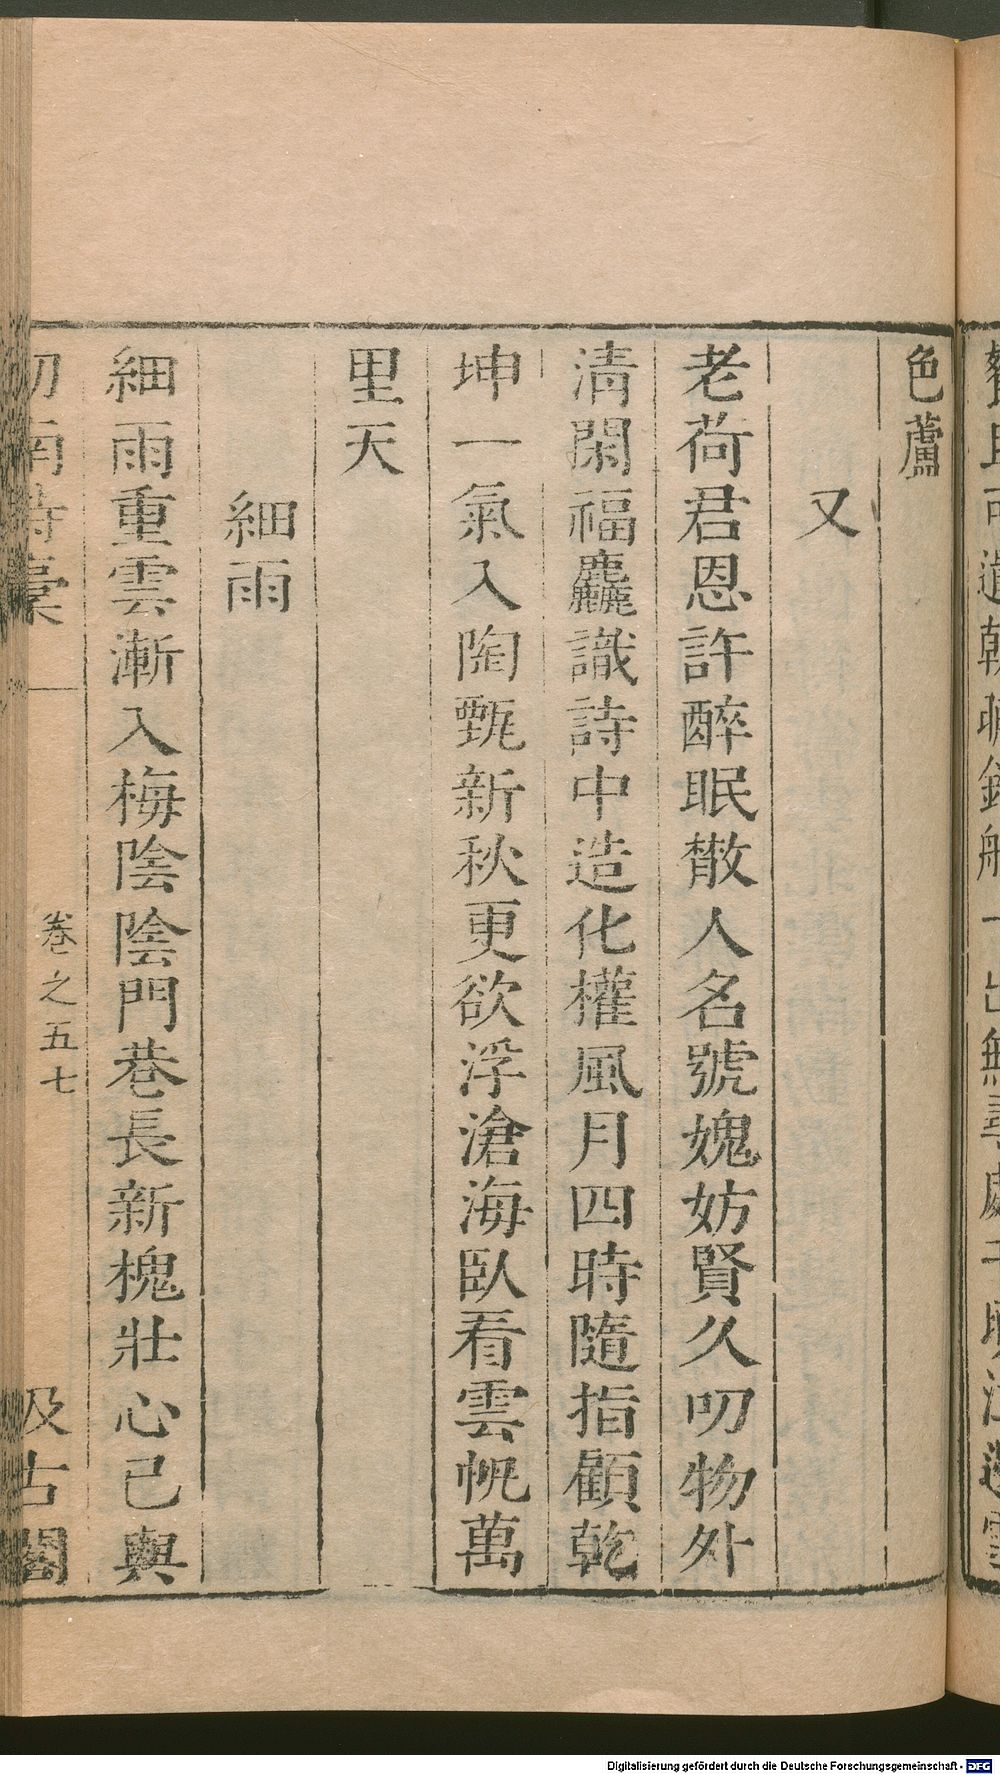 色蘆
又
老荷君恩許醉眠散人名號媿妨賢久叨物外
清閑福麤識詩中造化權風月四時隨指顧乾
坤一氣入陶甄新秋更欲浮滄海臥看雲帆萬
里天
細雨
細雨重雲漸入梅陰陰門巷長新槐壯心已與
劒南詩稾
卷之五七
汲古閣
Digitalisierung gefördert durch die Deutsche Forschungsgemeinschaft - DFG